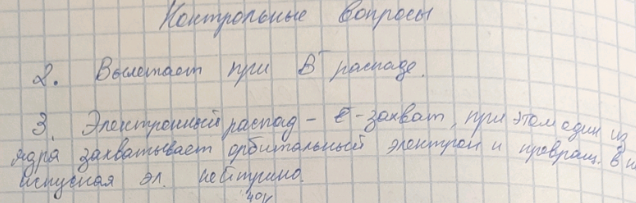 Контрольные вопросы
2. Вылетает при B⁻ распаде.
3. Электронный распад - e-захват, при этом один из
ядра захватывает орбитальный электрон и превращ. в
испуская эл. нейтрино.
40K